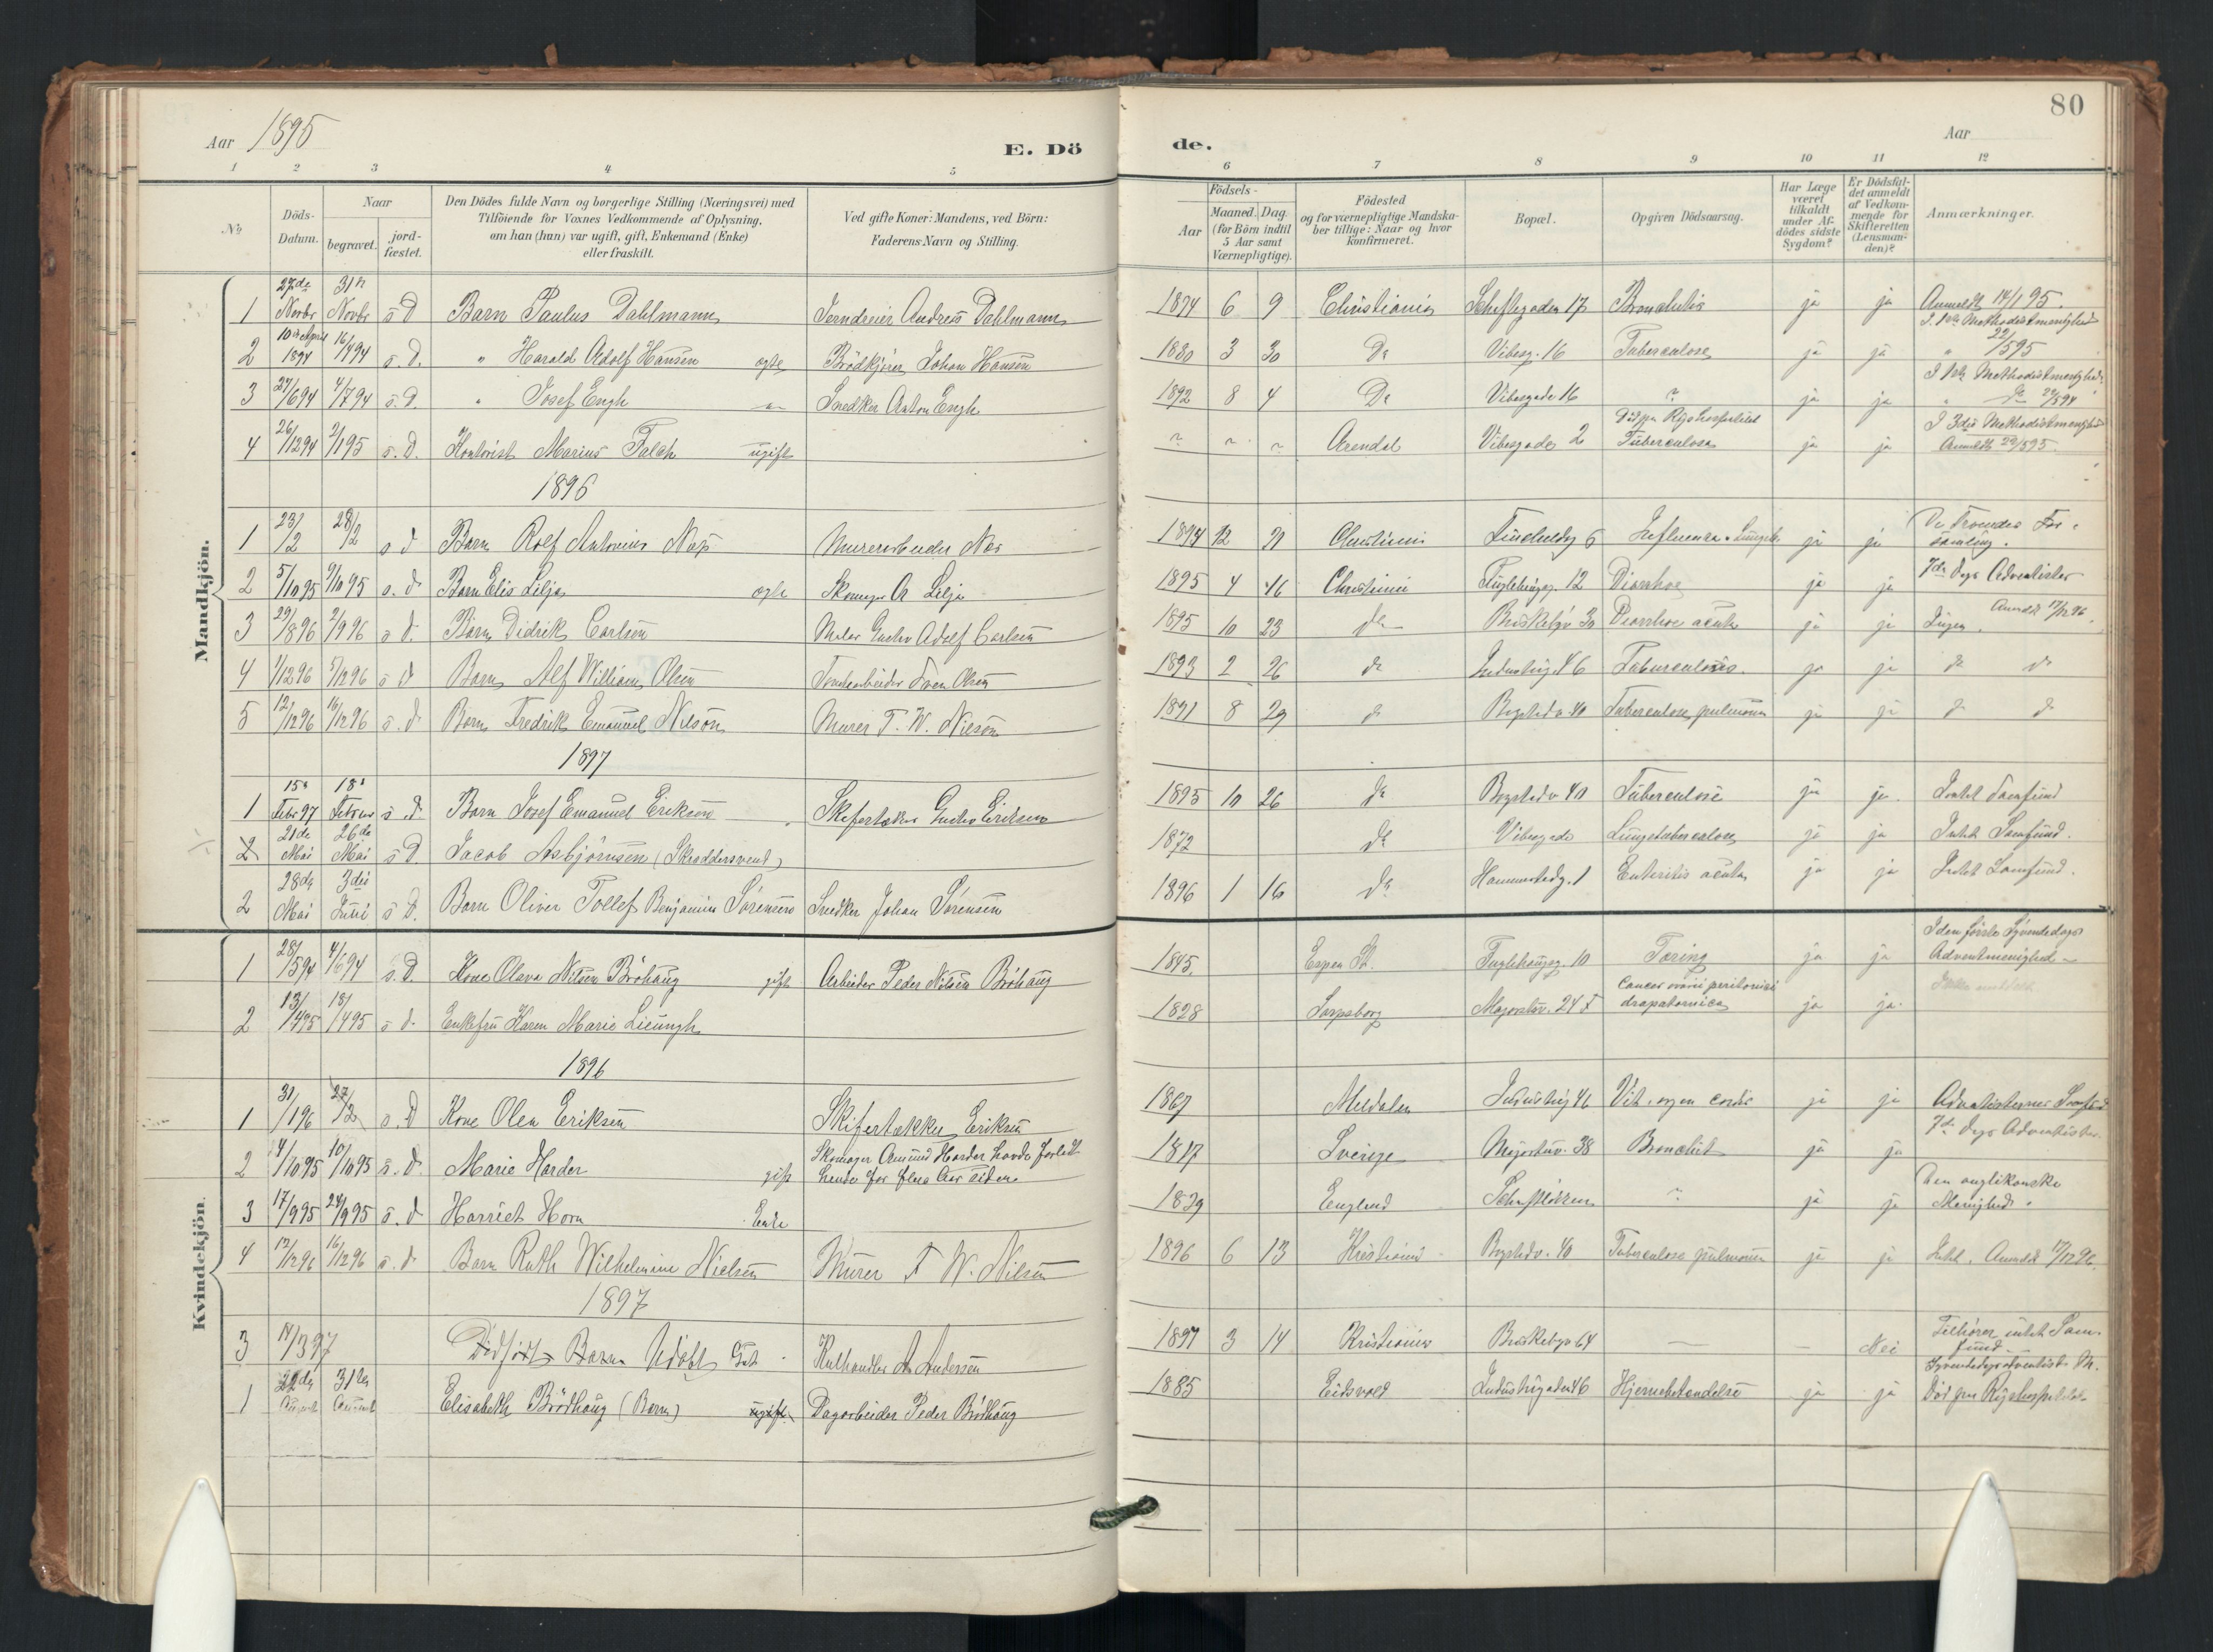 80
Aar 1895
E. Dö
de.
Aar
1 2 3 4 5 6 7 8 9 10 11 12
No
Döds-Datum.
Naar
begravet.
jord-fæstet.
Den Dödes fulde Navn og borgerlige Stilling (Næringsvei) med
Tilföiende for Voxnes Vedkommende af Oplysning,
om han (hun) var ugift, gift, Enkemand (Enke)
eller fraskilt.
Ved gifte Koner: Mandens, ved Börn:
Faderens Navn og Stilling.
Födsels-
Aar
Maaned. Dag.
(for Börn indtil
5 Aar samt
Værnepligtige).
Födested
og for værnepligtige Mandska-
ber tillige: Naar og hvor
konfirmeret.
Bopæl.
Opgiven Dödsaarsag.
Har Læge
været
tilkaldt
under Af-
dödes sidste
Sygdom?
Er Dödsfal-
det anmeldt
af Vedkom-
mende for
Skifteretten
(Lensman-
den)?
Anmærkninger.
Mandkjön.
1 27de Novbr 31te Novbr s D Barn Paulus Dahlmann Jerndreier Andreas Dahlmann 1894 6 9 Christiania Schultzgaden 17 Bronchitis ja ja Anmeldt 14/1 95.
I. 1ste Methodistmenighed
2 10de April 1894 16/4 94 s. D. " Harald Adolf Hansen ægte Brödkjörer Johan Hansen 1880 3 30 Do Vibesg. 16 Tuberculose ja ja " 22/5 95
I 1ste Methodistmenighed
3 27/6 94 4/7 94 s. D. " Josef Engh Snedker Anton Engh 1892 8 4 Do Vibesgade 16 ja ja
4 26/12 94 2/1 95 s. D. Kontorist Marius Falch ugift Arendal Vibesgade 2 Död paa Rigshospitalet
Tuberculose ja ja I 3die Methodistmenighed
Anmeldt 22/5 95.
1896
1 23/2 28/2 s d Barn Rolf Antonius Næs Murerarbeider Næs 1894 12 21 Christiania 6 Influenza ja ja De Troendes For-
samling.
2 5/10 95 9/10 95 s. d. Barn Elis Lilja ægte Skomager A Lilja 1895 4 16 Christiania Fuglehaugg. 12 Diarrhoe ja ja 7de Dags Adventister
3 29/8 96 2/9 96 s d. Barn Didrik Carlsen Maler Gustav Adolf Carlsen 1895 10 23 do Briskebyv 30 Diarrhoe acuta ja ja Ingen. Anmeldt 17/12 96.
4 1/12 96 5/12 96 s d Barn Alf William Olsen Tomtearbeider Sven Olsen 1893 2 26 do Industrig. 46 Tuberculosis. ja ja do do
5 12/12 96 16/12 96 s. d. Barn Fredrik Emanuel Nilson Murer F. W. Nilson 1891 8 29 do Bogstadv. 40 Tuberculose pulmonum ja ja do do
1897
1 15de Febr 97 18de Februar s. d. Barn Josef Emanuel Eriksen Skifertækker Gustav Eriksen 1895 10 26 do Bogstadv 40 Tuberculose ja ja. Intet Samfund
2 21de Mai 26de Mai s D Jacob Asbjörnsen (Skræddersvend) 1872 do Vibesgade Lungetuberculose ja ja Intet Samfund.
2 28de Mai 3die Juni s D. Barn Oliver Tollef Benjamin Sörensen Snedker Johan Sörensen 1896 1 16 do Hammerstadg. 1 Enteritis acuta ja ja Intet Samfund.
Kvindekjön.
1 28/5 94 4/6 94 s. D. Kone Olava Nilsen Bröhaug gift Arbeider Peder Nilsen Bröhaug 1845. Fuglehaugg. 10 Tæring ja ja I den förste Syvendedags
Adventmenighed
2 13/4 95 18/4 95 s d. Enkefru Karen Marie Lieungh 1828 Sarpsborg Majorstuv. 24 I Cancer ovarii peritonei
ja ja.
1896
1 31/1 96 27/2 s. D Kone Olea Eriksen Skifertækker Eriksen 1867 Meldalen Industrig 46 Vit. organ cordis ja ja Adventisternes Samfund
2 4/10 95 10/10 95 s. d. Marie Harder gift Skomager Amund Harder havde forladt
hende for flere Aar siden 1817 Sverige Majorstuv. 38 Bronchit ja ja 7de Dags Adventister
3 17/9 95 24/9 95 s. d Harriet Horn Enke 1839 England ja ja Den anglikanske
Menighed.
4 12/12 96 16/12 96 s. d Barn Ruth Wilhelmine Nielsen Murer F W. Nilsen 1896 6 13 Kristiania Bogstadv. 40 Tuberculose pulmonum ja ja Intet. Anmeldt 17/12 96.
1897
3 14/3 97 Dödfödt Barn Udöbt Gut Kulhandler A. Andersen 1897 3 14 Kristiania Briskebyv 64 — — Nei Tilhörer intet Sam-
fund.
1 22de August 31te August Elisabeth Brödhaug (Barn) ugift Dagarbeider Peder Brödhaug 1885 Eidsvold Industrigaden 46 Hjernebetændelse ja ja Syvendedags adventist M.
Död paa Rigshospitalet